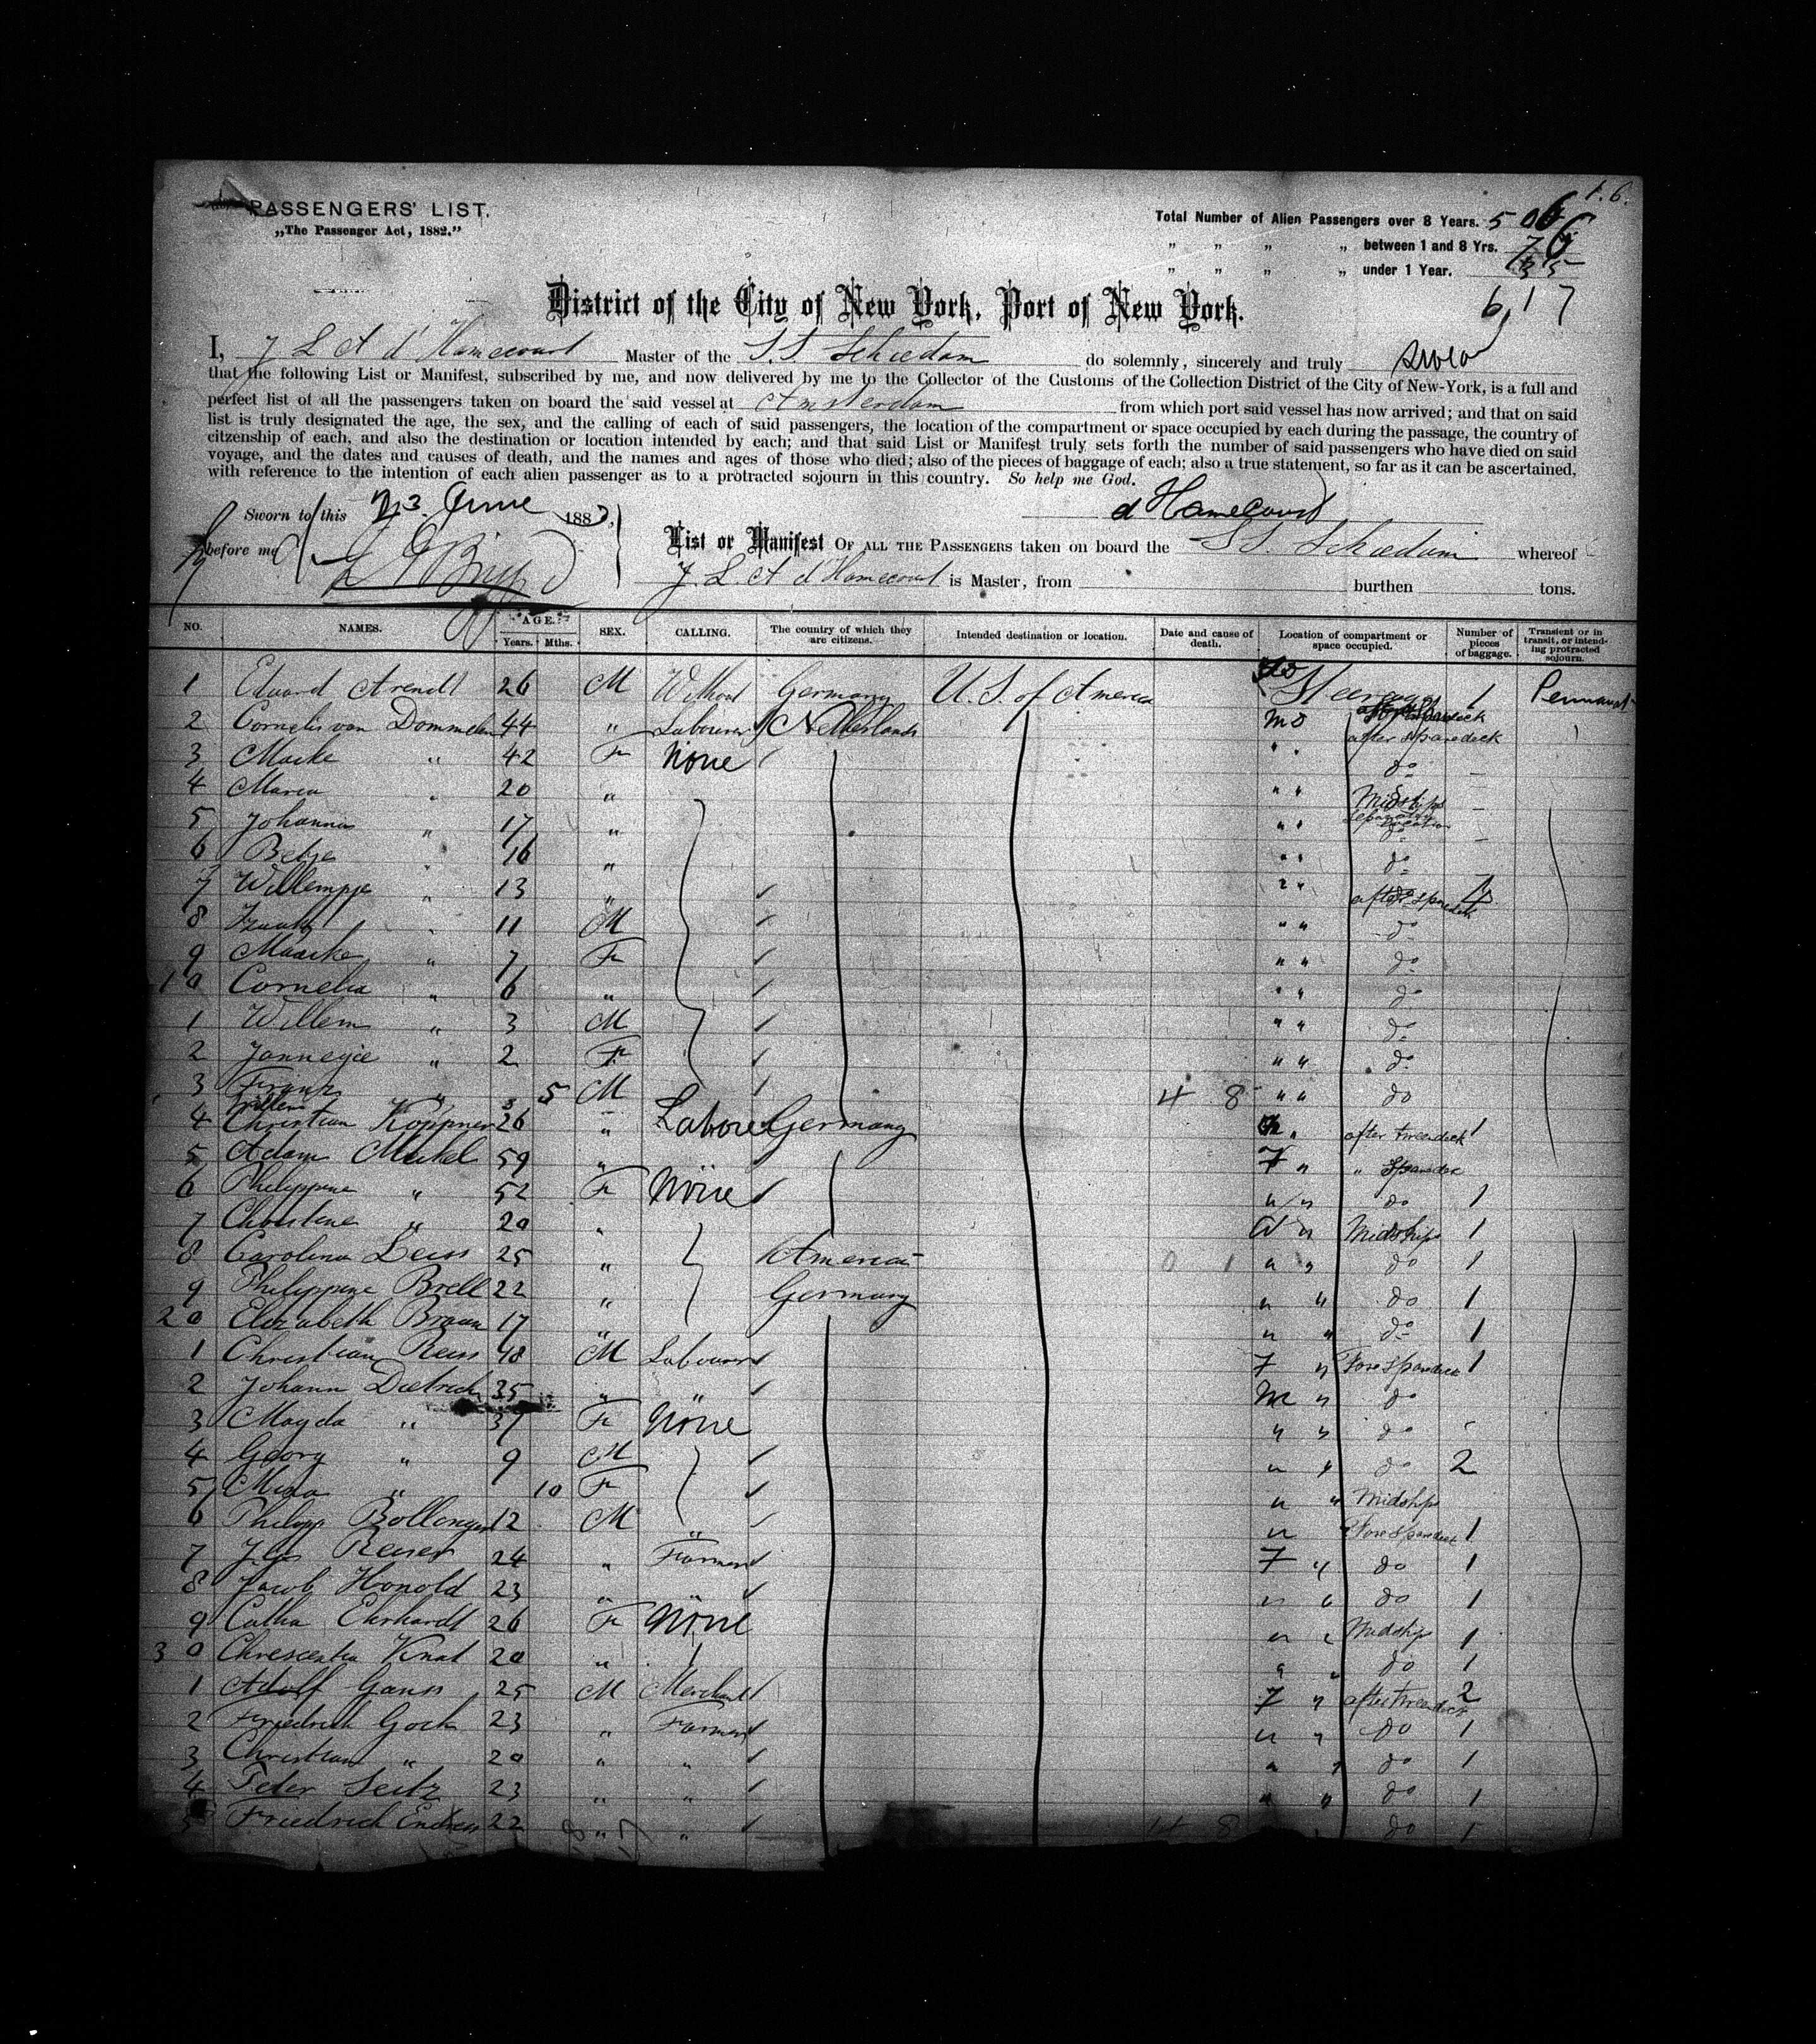 1.6.
PASSENGERS' LIST.
„The Passenger Act, 1882."
Total Number of Alien Passengers over 8 Years. 506
„ „ „ „ between 1 and 8 Yrs. 76
„ „ „ „ under 1 Year. 35
617
District of the City of New York, Port of New York.
I, J L A d'Hamecourt Master of the S.S. Schiedam do solemnly, sincerely and truly swear
that the following List or Manifest, subscribed by me, and now delivered by me to the Collector of the Customs of the Collection District of the City of New-York, is a full and
perfect list of all the passengers taken on board the said vessel at Amsterdam from which port said vessel has now arrived; and that on said
list is truly designated the age, the sex, and the calling of each of said passengers, the location of the compartment or space occupied by each during the passage, the country of
citzenship of each, and also the destination or location intended by each; and that said List or Manifest truly sets forth the number of said passengers who have died on said
voyage, and the dates and causes of death, and the names and ages of those who died; also of the pieces of baggage of each; also a true statement, so far as it can be ascertained,
with reference to the intention of each alien passenger as to a protracted sojourn in this country. So help me God.
Sworn to this 23 June 1883,
d Hamecourt
before me
List or Manifest OF ALL THE PASSENGERS taken on board the S.S. Schiedam whereof
J. L. A d'Hamecourt is Master, from burthen tons.
NO. NAMES. AGE. Years. Mths. SEX. CALLING. The country of which they are citizens. Intended destination or location. Date and cause of death. Location of compartment or space occupied. Number of pieces of baggage. Transient or in transit, or intending protracted sojourn.
1 Eduard Arendt 26 M Without Germany U.S. of America Steerage 1
2 Cornelis van Dommelen 44 „ Labourer Netherlands after spardeck
3 Maike „ 42 F None do
4 Maria „ 20 „ Midships
5 Johanna „ 17 „
6 Betje „ 16 „ do
7 Willempje „ 13 „ after spardeck 4
8 Izaak „ 11 M do
9 Maaike „ 7 F do
10 Cornelia „ 6 „ do
1 Willem „ 3 M do
2 Jannegie „ 2 F do
3 Frank „ 5 M 4 8 do
4 Christian Koppner 26 „ Labore Germany after tweendeck 1
5 Adam Meckel 59 „ F „ „ Spardeck
6 Philippine „ 52 F None „ „ do 1
7 Christine „ 20 „ A „ Midships 1
8 Carolina Leiss 25 „ American 0 1 „ „ do 1
9 Philippine Brell 22 „ Germany „ „ do 1
20 Elizabeth Braun 17 „ „ „ do 1
1 Christian Reiss 48 M Labourer F „ Fore spardeck 1
2 Johann Dietrich 35 „ „ M „ do
3 Magda „ 37 F None „ „ do
4 Georg „ 9 M „ „ do 2
5 Mina „ 10 F „ „ Midships
6 Philipp Bollonger 12 M „ „ Fore spardeck 1
7 Reiser 24 „ Farmer F „ do 1
8 Jacob Honold 23 „ „ „ „ do 1
9 Catha Ehrhardt 26 F None „ „ Midship 1
30 Chrescentia Knat 20 „ „ „ do 1
1 Adolf Ganss 25 M Merchant F „ after tweendeck 2
2 Friedrich Gock 23 „ Farmer „ „ do 1
3 Christian „ 20 „ „ „ „ do 1
4 Peter Seitz 23 „ „ „ „ do 1
5 Friedrich Endress 22 „ „ 4 8 do 1